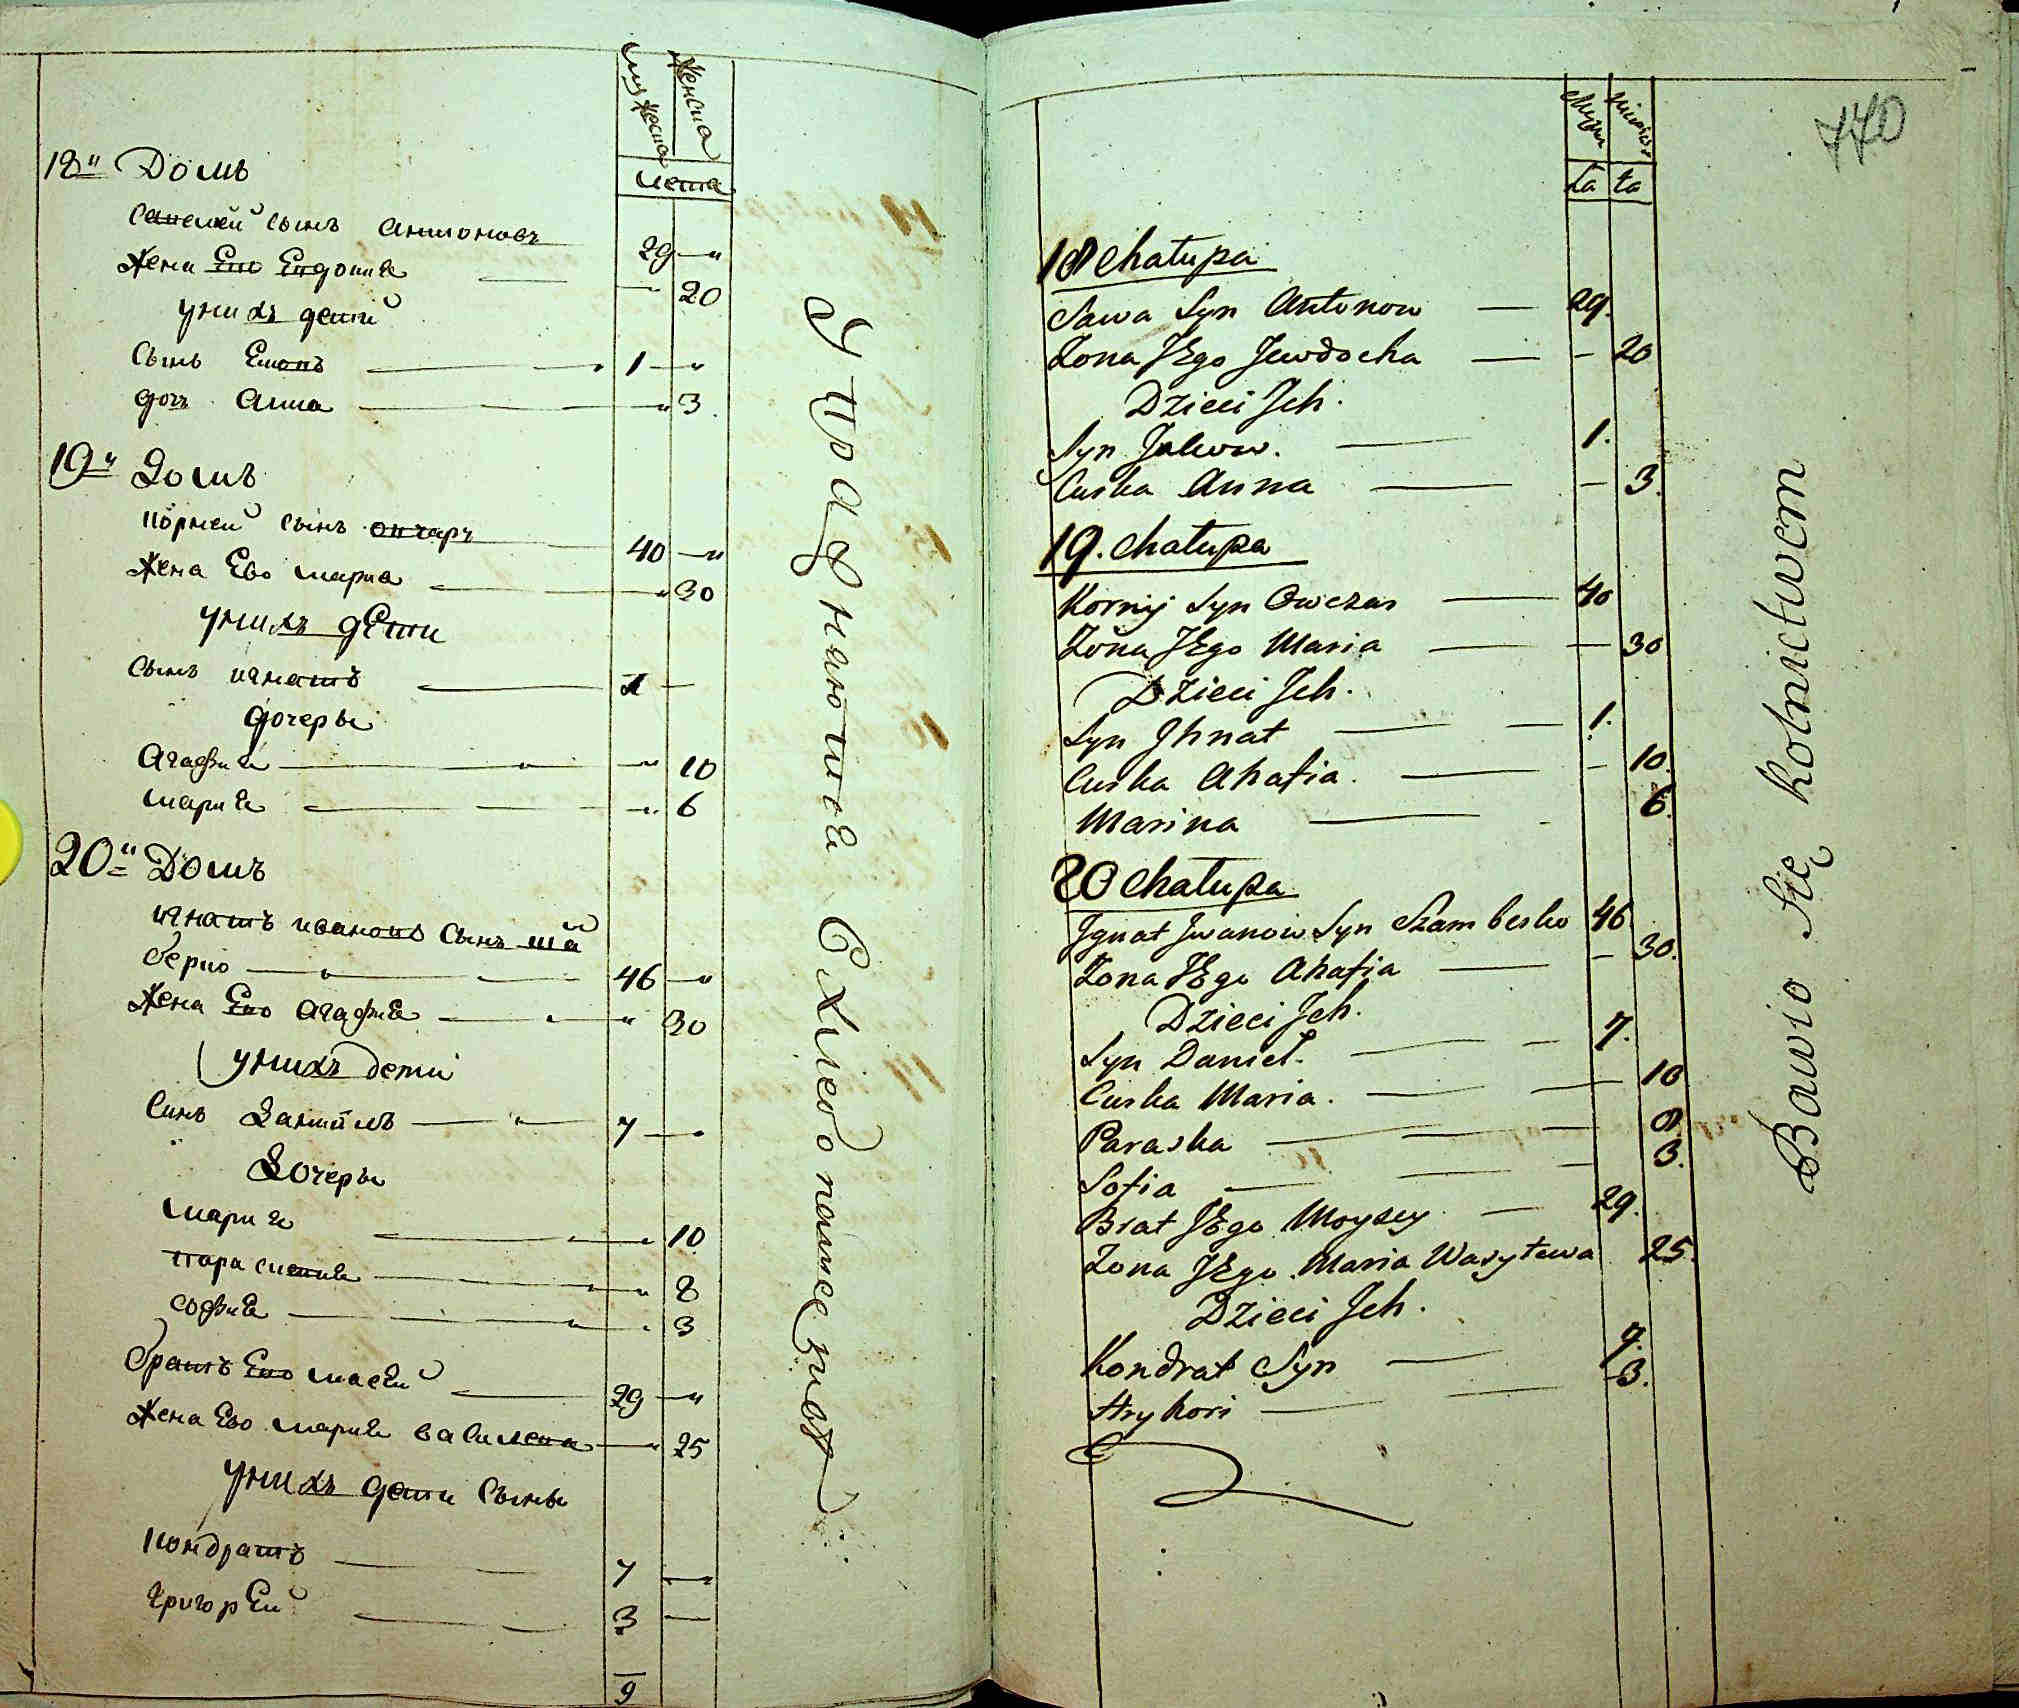 мужеска женска
лета
18й Домъ
Савелей сынъ антоновъ 29 "
Жена Ево Евдокия 20
у них детей
Сынъ 1 "
дочь анна 3
19й Домъ
корней сынъ овчаръ 40 "
Жена Ево мариа 30
у нихъ дети
Сынъ игнатъ 1
дочеры
Агафия 10
мария 6
20й Домъ
игнатъ ивановъ сынъ ша
берко 46
Жена Ево агафия 30
у нихъ дети
Синъ Даниилъ 7
Дочеры
мария 10
парасия 8
софия 3
братъ Ево масей 29
Жена Ево мария василева 25
у нихъ дети Сыны
кондратъ 7
григорей 3
9
Упражняются в Хлебопашестве
770
ta ta
18 chałupa
Sawa Syn Antonow 29.
Żona JEgo Jewdocha 20
Dzieci Jch.
Syn 1.
Curka Anna 3.
19. chałupa
Kornij Syn Owczar 40
Żona JEgo Maria 30
Dzieci Jch.
Syn Jhnat 1.
Curka Ahafia. 10.
Marina 6.
20 chałupa
Jgnat Jwanow Syn Szamberko 46
Żona JEgo Ahafia 30.
Dzieci Jch.
Syn Danieł. 7.
Curka Maria. 10
Paraska 8
Sofia 3.
Brat JEgo Moysey 29.
Żona JEgo Maria Wasylewa 25.
Dzieci Jch.
Kondrat Syn 7.
Hryhori 3.
Bawio Się Rolnictwem